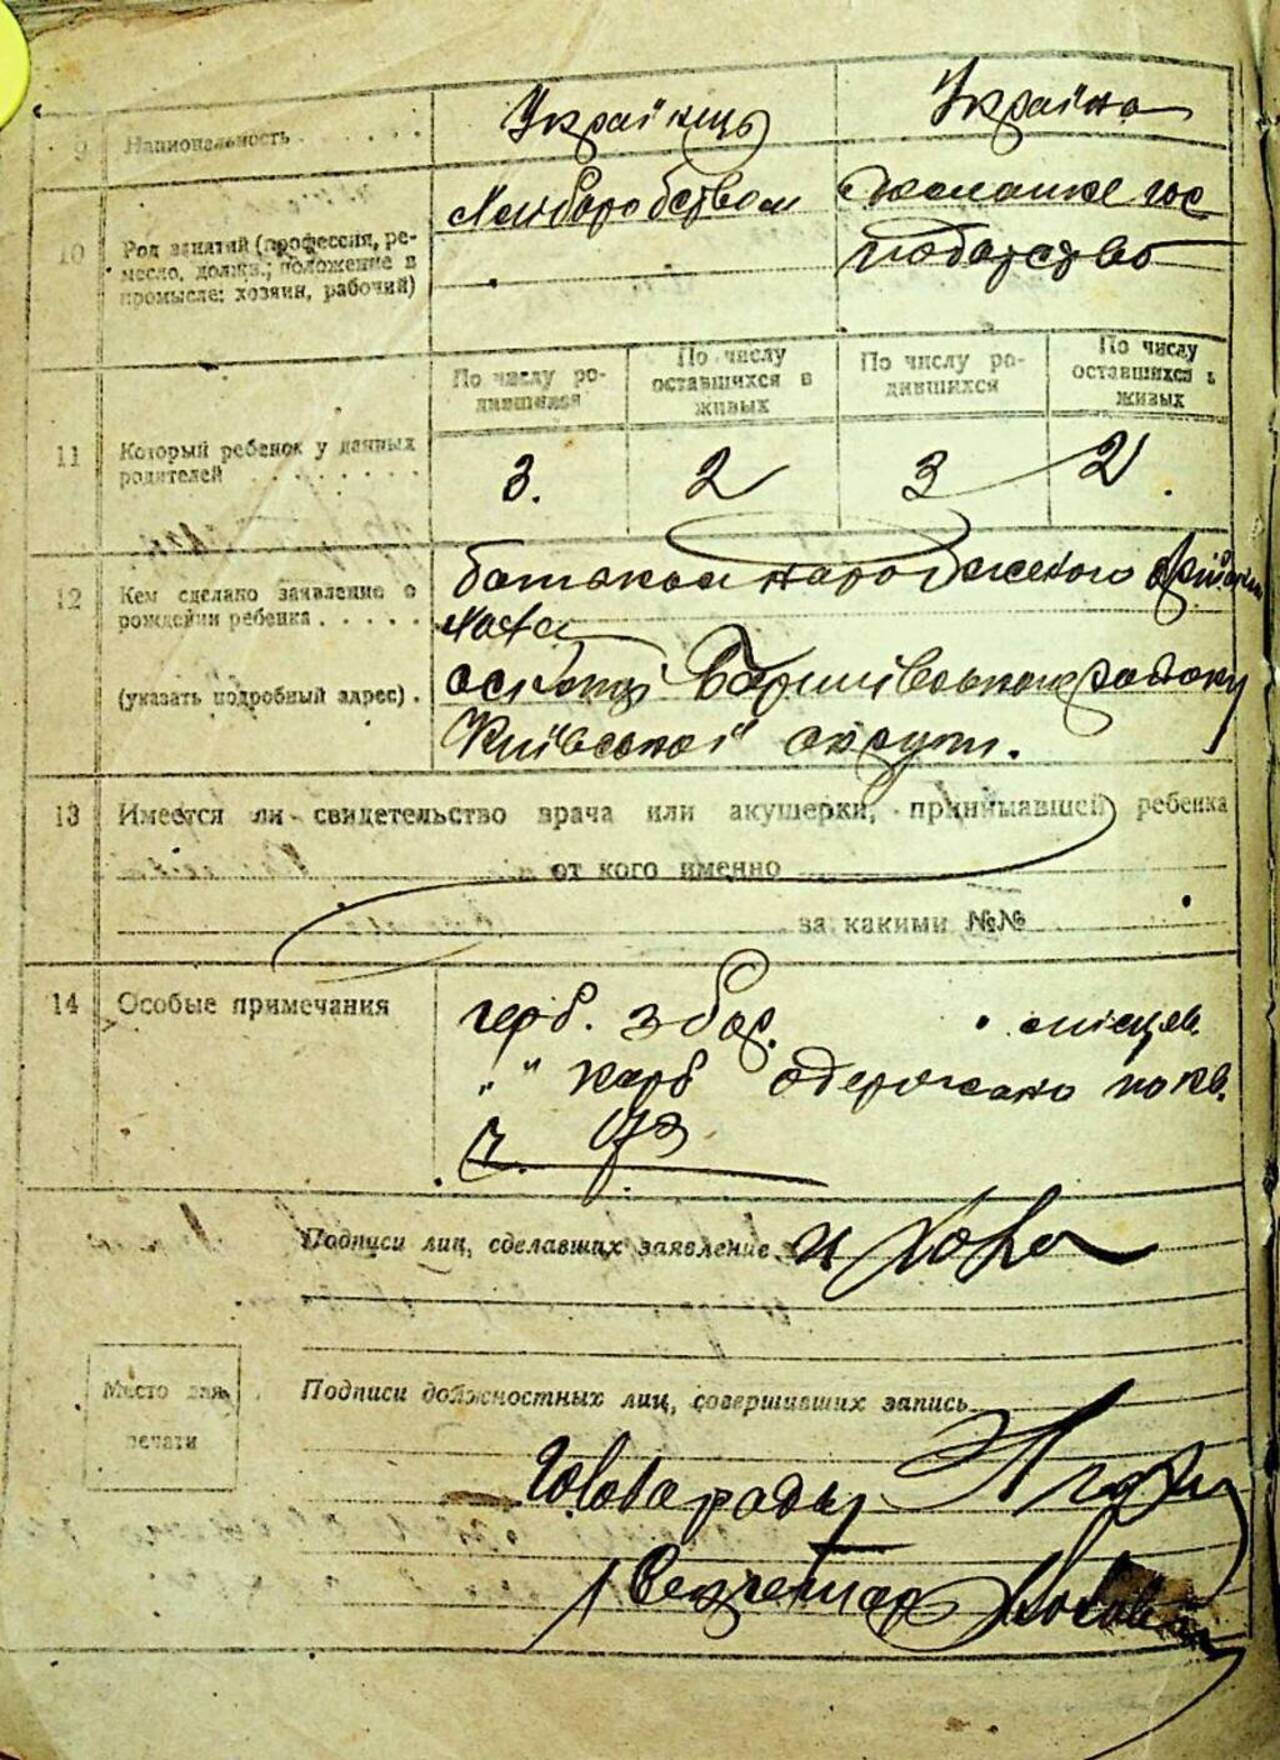 9 Национальность Українець Українка
10 Род занятий (профессия, ре-
месло, должн.; положение в
промысле: хозяин, рабочий)
Хлиборобством
домашнє гос
подарство
11 Который ребенок у данных
родителей
По числу ро-
дившихся
По числу
оставшихся в
живых
По числу ро-
дившихся
По числу
оставшихся в
живых
3. 2 3 2.
12 Кем сделано заявление о
рождении ребенка
(указать подробный адрес).
батьком народженого
Баришівського району
Київської округи.
13 Имеется ли свидетельство врача или акушерки, принимавшей ребенка
от кого именно
за какими №№
14 Особые примечания
герб. збор. місцев.
" " карб одержано по кв.
ч.
Подписи лиц, сделавших заявление
Место для
печати
Подписи должностных лиц, совершивших запись
Голова ради
Секретар